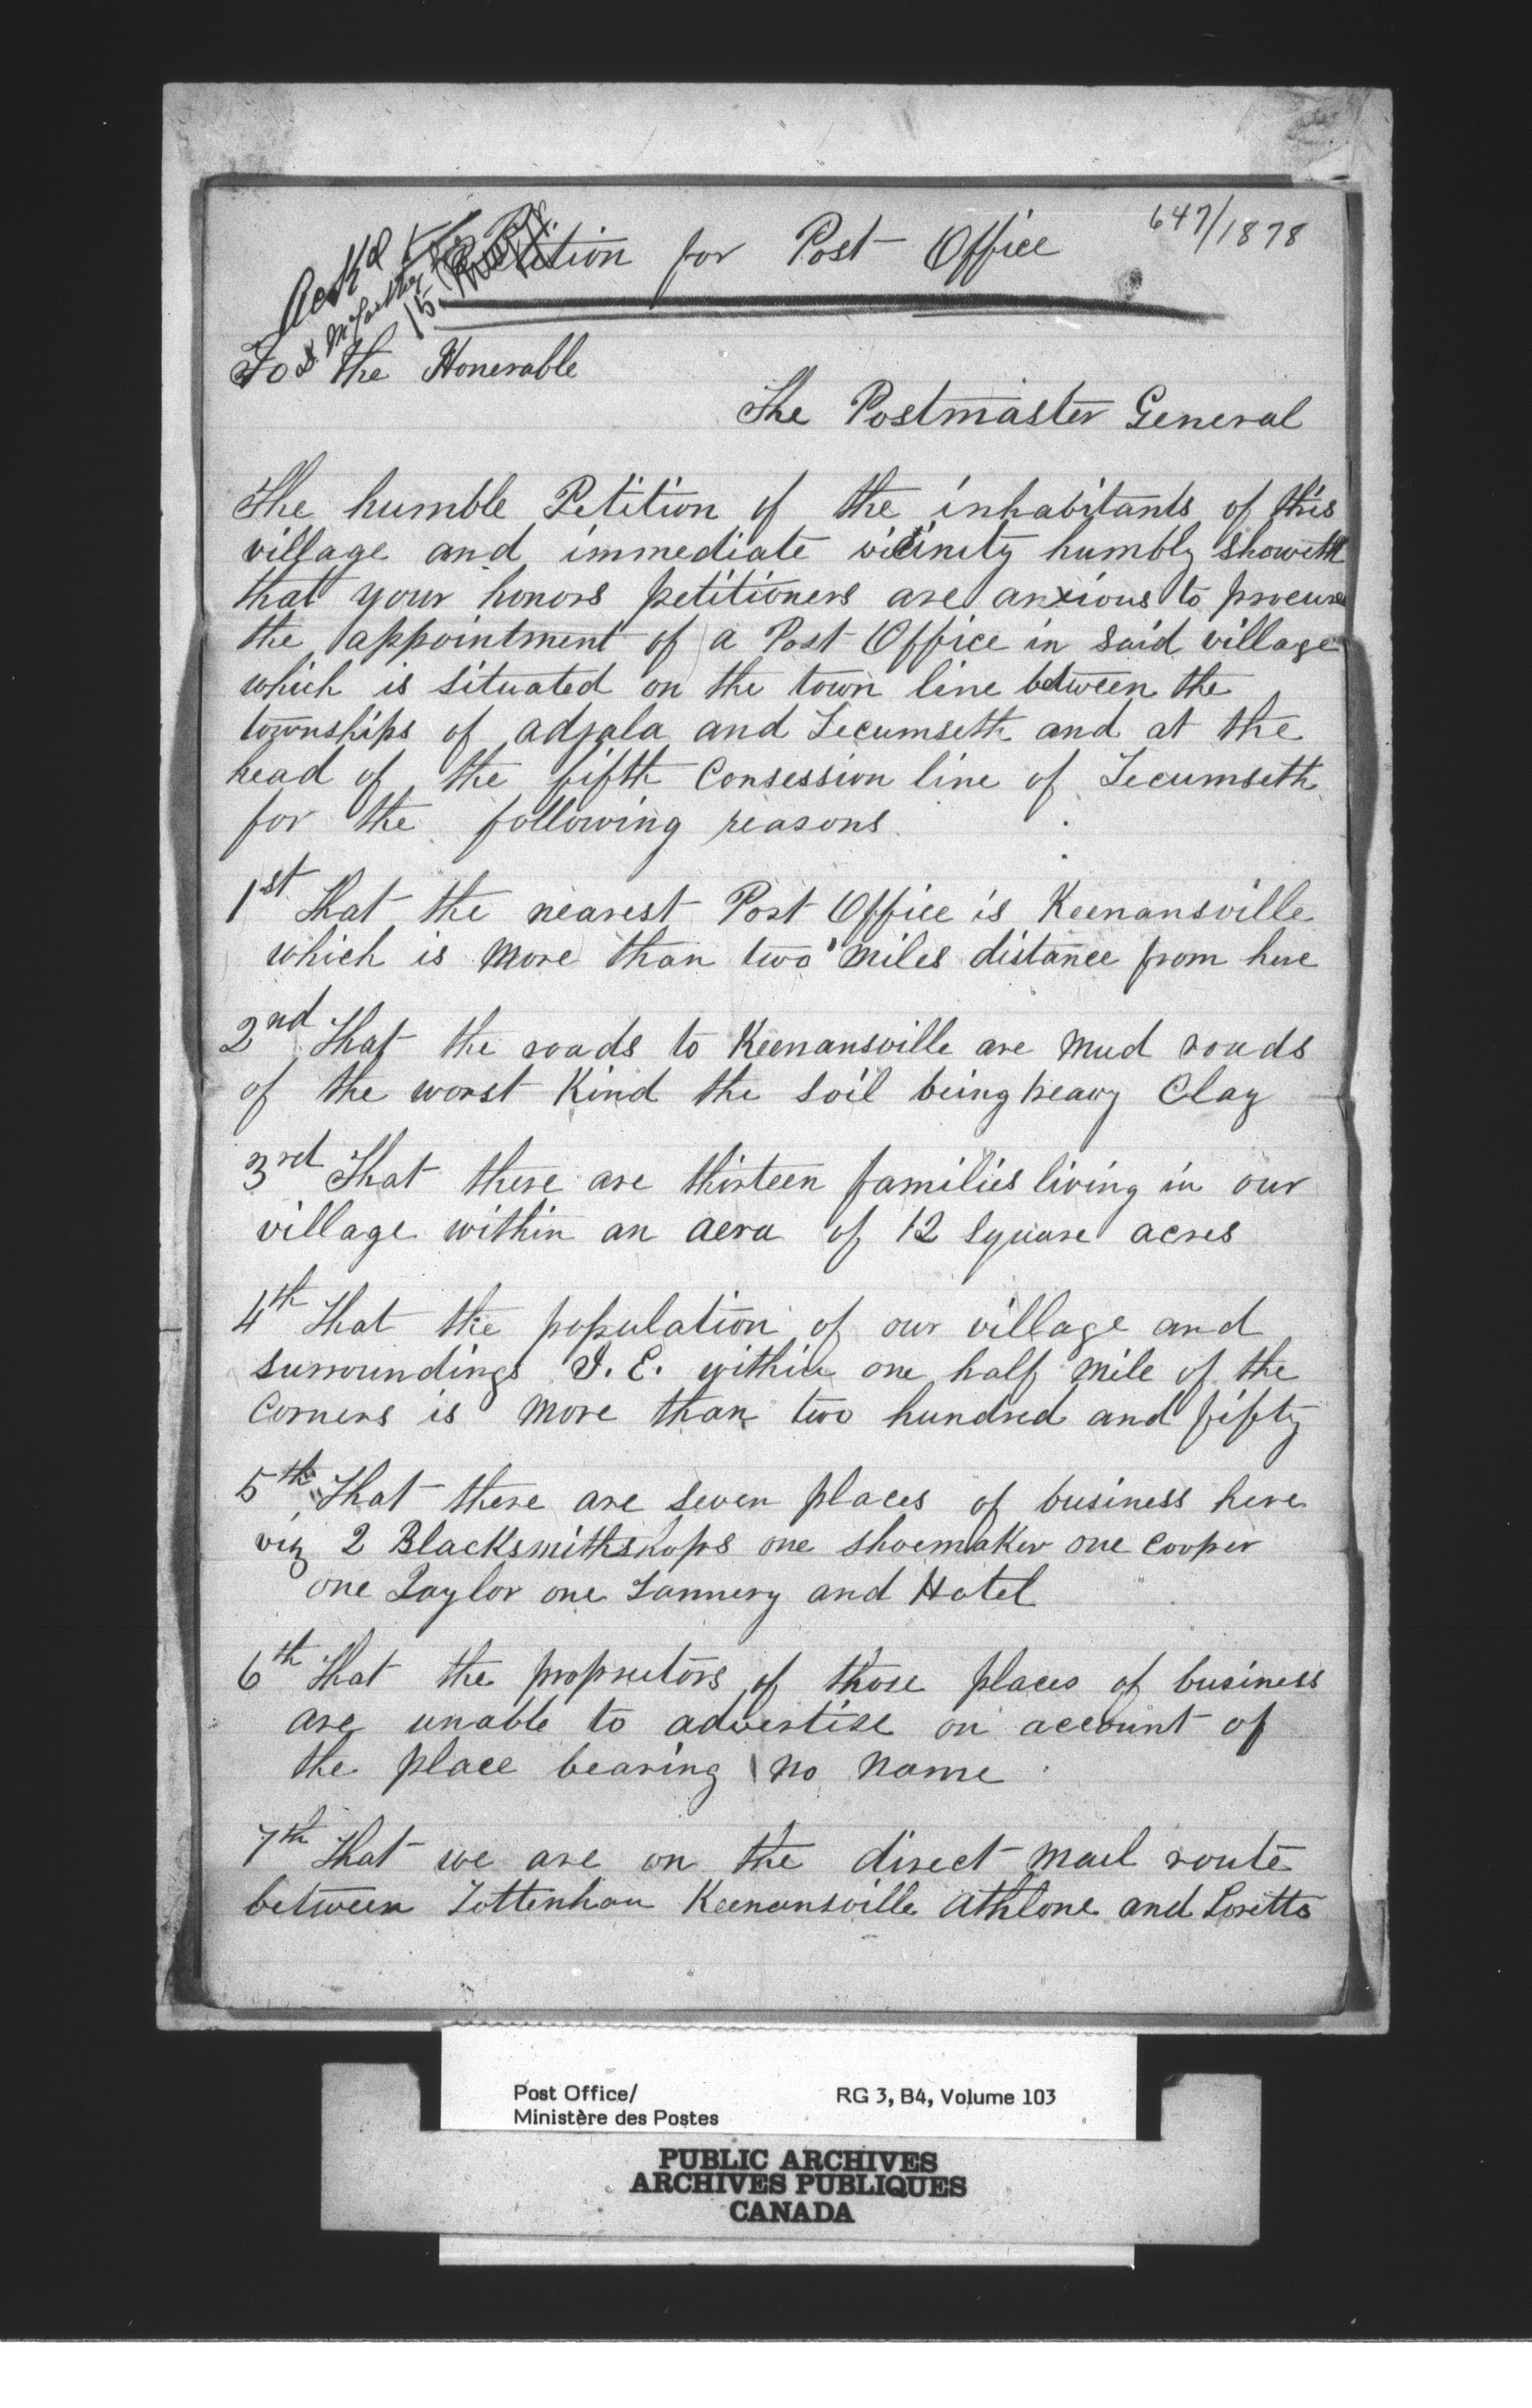 647/1878
Petition for Post Office
Ackd
D. McCarthy
15
To the Honerable
The Postmaster General
The humble Petition of the inhabitants of this
village and immediate vicinity humbly showeth
that your honors petitioners are anxious to procure
the appointment of a Post Office in said village
which is situated on the town line between the
townships of adjala and Tecumseth and at the
head of the fifth Consession line of Tecumseth
for the following reasons
1st That the nearest Post Office is Keenansville
which is more than two miles distance from here
2nd That the roads to Keenansville are mud roads
of the worst Kind the soil being heavy Clay
3rd That there are thirteen families living in our
village within an aera of 12 square acres
4th That the population of our village and
surroundings I.E. within one half mile of the
Corners is more than two hundred and fifty
5th That there are seven places of business here
viz 2 Blacksmithshops one shoemaker one cooper
one Taylor one Tannery and Hotel
6th That the proprietors of those places of business
are unable to advertise on account of
the place bearing no name
7th That we are on the direct mail route
between Tottenham Keenansville athlone and Loretto
Post Office/
Ministère des Postes
RG 3, B4, Volume 103
PUBLIC ARCHIVES
ARCHIVES PUBLIQUES
CANADA